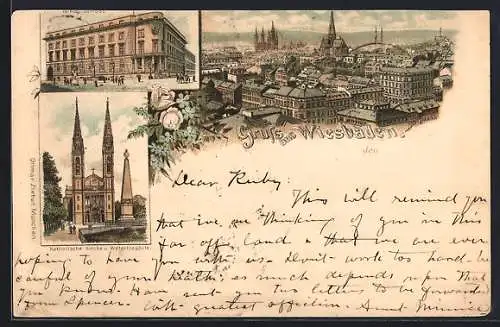 Gruss aus Wiesbaden.
den
Katholische Kirche u. Waterloosäule.
Ottmar Zieher, München.
Dear Ruby:
This will remind you
that we are thinking of you in this
far off land & that we are ever
hoping to have you with us - don't work too hard - be
careful of your health; as much depends upon that
you know. Have sent you two letters to be forwarded
from Spencer. With greatest affection. Aunt Minnie